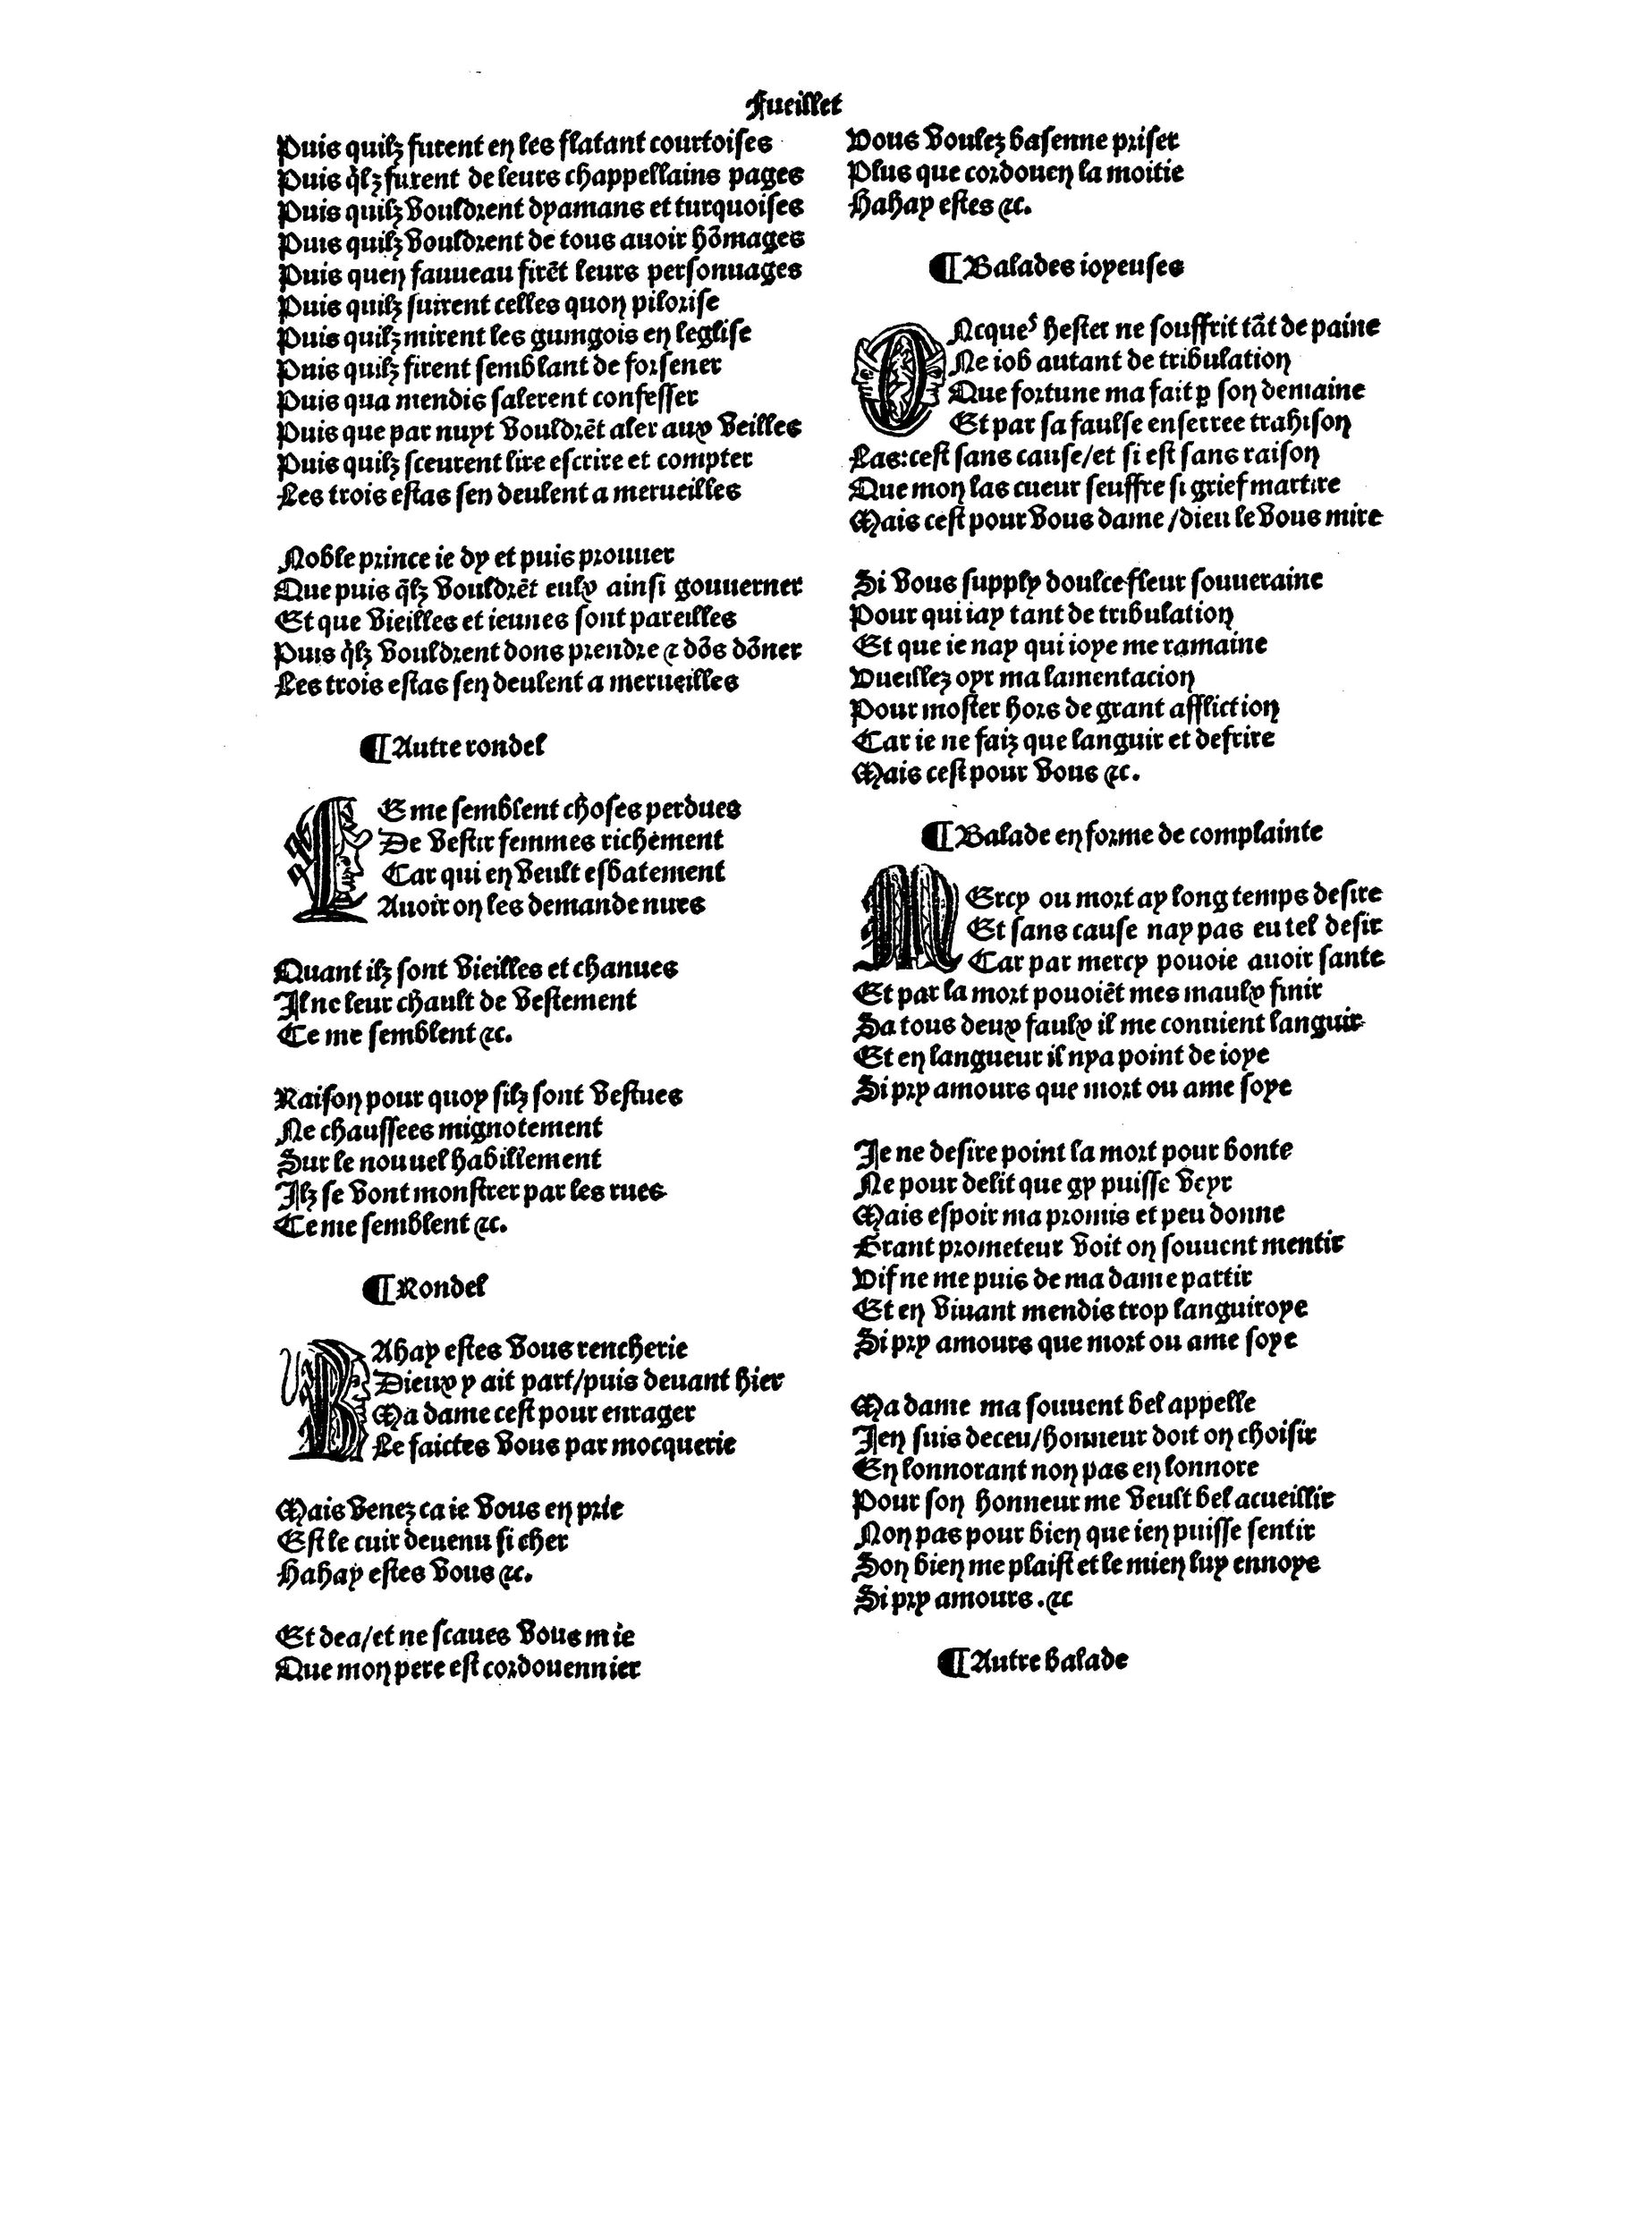 Fueillet
Puis quilz furent en les flatant courtoises
Puis q̃lz furent de leurs chappellains pages
Puis quilz vouldrent dyamans et turquoises
Puis quilz vouldrent de tous auoir hõmages
Puis quen fauueau firẽt leurs personnages
Puis quilz suirent celles quon pilorise
Puis quilz mirent les gumgois en leglise
Puis quilz firent semblant de forsener
Puis qua mendis salerent confesser
Puis que par nuyt vouldrẽt aler aux veilles
Puis quilz sceurent lire escrire et compter
Les trois estas sen deulent a merueilles
Noble prince ie dy et puis prouuer
Que puis q̃lz vouldrẽt eulx ainsi gouuerner
Et que vieilles et ieunes sont pareilles
Puis q̃lz vouldrent dons prendre ⁊ dõs dõner
Les trois estas sen deulent a merueilles
¶ Autre rondel
CE me semblent choses perdues
De vestir femmes richement
Car qui en veult esbatement
Auoir on les demande nues
Quant ilz sont vieilles et chanues
Il ne leur chault de vestement
Ce me semblent ⁊c.
Raison pour quoy silz sont vestues
Ne chaussees mignotement
Sur le nouuel habillement
Ilz se vont monstrer par les rues
Ce me semblent ⁊c.
¶ Rondel
BAhay estes vous rencherie
Dieux y ait part/puis deuant hier
Ma dame cest pour enrager
Le faictes vous par mocquerie
Mais venez ca ie vous en prie
Est le cuir deuenu si cher
Hahay estes vous ⁊c.
Et dea/et ne scaues vous mie
Que mon pere est cordouennier
Vous voulez basenne priser
Plus que cordouen la moitie
Hahay estes ⁊c.
¶ Balades ioyeuses
ONcques hester ne souffrit tãt de paine
Ne iob autant de tribulation
Que fortune ma fait ꝑ son demaine
Et par sa faulse enserree trahison
Las:cest sans cause/et si est sans raison
Que mon las cueur seuffre si grief martire
Mais cest pour vous dame/dieu le vous mire
Si vous supply doulce fleur souueraine
Pour qui iay tant de tribulation
Et que ie nay qui ioye me ramaine
Vueillez oyr ma lamentacion
Pour moster hors de grant affliction
Car ie ne faiz que languir et defrire
Mais cest pour vous ⁊c.
¶ Balade en forme de complainte
MErcy ou mort ay long temps desire
Et sans cause nay pas eu tel desir
Car par mercy pouoie auoir sante
Et par la mort pouoiẽt mes maulx finir
Sa tous deux faulx il me conuient languir
Et en langueur il nya point de ioye
Si pry amours que mort ou ame soye
Je ne desire point la mort pour bonte
Ne pour delit que gy puisse veyr
Mais espoir ma promis et peu donne
Grant prometeur voit on souuent mentir
Vif ne me puis de ma dame partir
Et en viuant mendis trop languiroye
Si pry amours que mort ou ame soye
Ma dame ma souuent bel appelle
Jen suis deceu/honneur doit on choisir
En lonnorant non pas en lonnore
Pour son honneur me veult bel acueillir
Non pas pour bien que ien puisse sentir
Son bien me plaist et le mien luy ennoye
Si pry amours .⁊c
¶ Autre balade